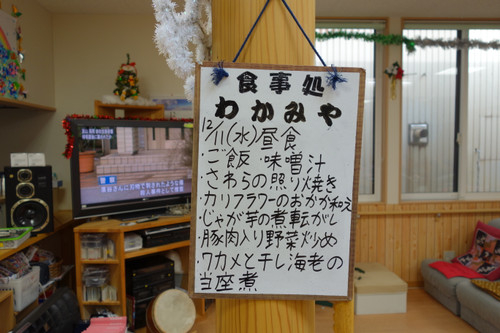 食事処
わかみや
12/11(水)昼食
・ご飯・味噌汁
・さわらの照り焼き
・カリフラワーのおかか和え
・じゃが芋の煮転がし
・豚肉入り野菜炒め
・ワカメと干し海老の
当座煮
警察